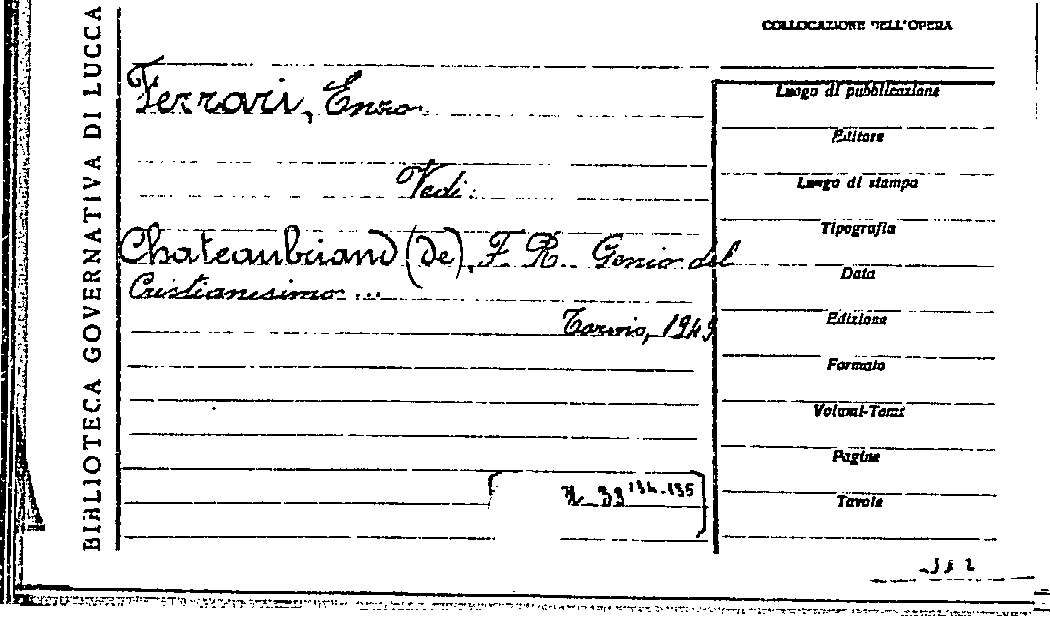 BIBLIOTECA GOVERNATIVA DI LUCCA
COLLOCAZIONE DELL'OPERA
Ferrari, Enzo
Vedi:
Chateaubriand (de), F. R. Genio del
Cristianesimo ...
1949
134-135
Luogo di pubblicazione
Editore
Luogo di stampa
Tipografia
Data
Edizione
Formato
Volumi-Tomi
Pagine
Tavole